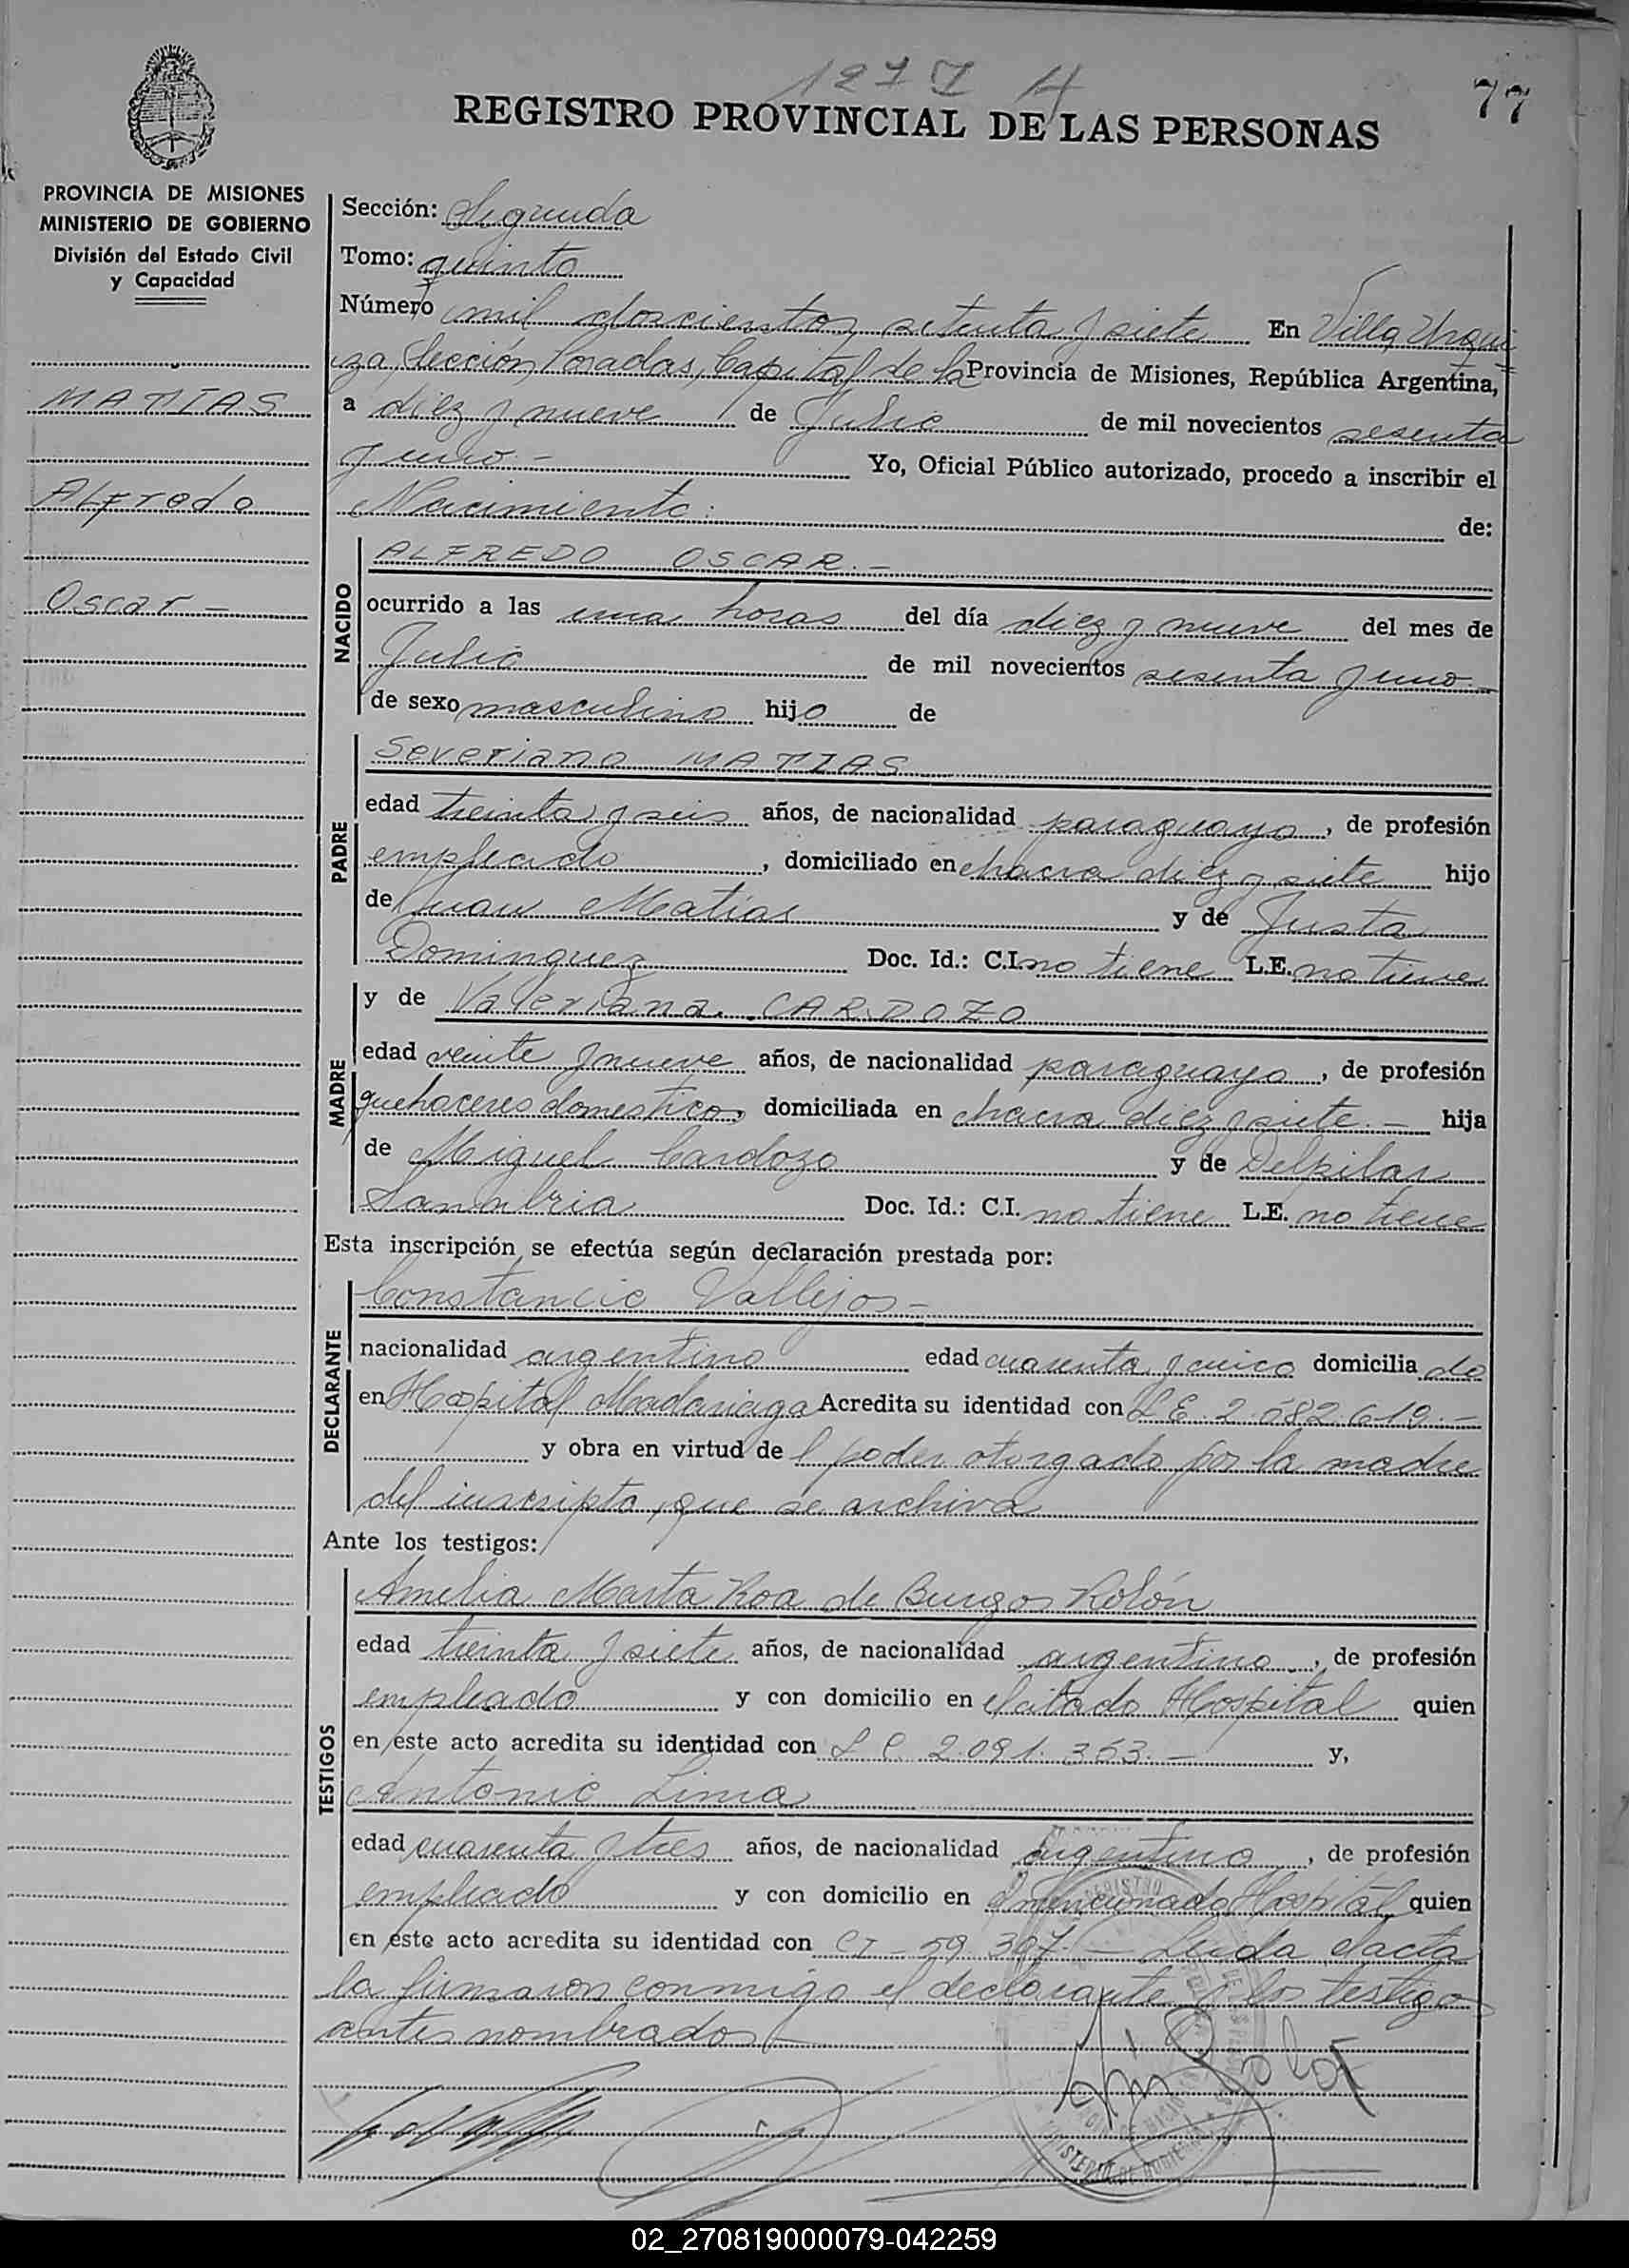 1277 H
77
REGISTRO PROVINCIAL DE LAS PERSONAS
PROVINCIA DE MISIONES
MINISTERIO DE GOBIERNO
División del Estado Civil
y Capacidad
MATIAS
Alfredo
Oscar -
Sección: Segunda
Tomo: quinto
Número mil doscientos setenta y siete En Villa Urqui
za, Sección Posadas, Capital de la Provincia de Misiones, República Argentina,
a diez y nueve de Julio de mil novecientos sesenta
y uno.- Yo, Oficial Público autorizado, procedo a inscribir el
Nacimiento: de:
NACIDO
ALFREDO OSCAR.-
ocurrido a las una horas del día diez y nueve del mes de
Julio de mil novecientos sesenta y uno.-
de sexo masculino hijo de
PADRE
Severiano MATIAS
edad treinta y seis años, de nacionalidad paraguaya, de profesión
empleado, domiciliado en chacra diez y siete hijo
de Juan Matias y de Justa
Dominguez Doc. Id.: C.I. no tiene L.E. no tiene
MADRE
y de Valeriana CARDOZO
edad veinte y nueve años, de nacionalidad paraguaya, de profesión
quehaceres domesticos, domiciliada en chacra diez y siete.- hija
de Miguel Cardozo y de Delpilar
Sanabria Doc. Id.: C.I. no tiene L.E. no tiene
Esta inscripción se efectúa según declaración prestada por:
DECLARANTE
Constancio Vallejos-
nacionalidad argentino edad cuarenta y cinco domiciliado
en Hospital Madariaga Acredita su identidad con L E 2.582.619.-
y obra en virtud del poder otorgado por la madre
del inscripto, que se archiva
Ante los testigos:
TESTIGOS
Amelia Marta Roa de Burgos Rolón
edad treinta y siete años, de nacionalidad argentina, de profesión
empleado y con domicilio en el citado Hospital quien
en este acto acredita su identidad con L C 2.091.353.- y,
Antonio Lima
edad cuarenta y tres años, de nacionalidad argentino, de profesión
empleado y con domicilio en el mencionado Hospital quien
en este acto acredita su identidad con CI - 59.367.- Leida el acta
la firmaron conmigo el declarante y los testigos
antes nombrados
02_270819000079-042259